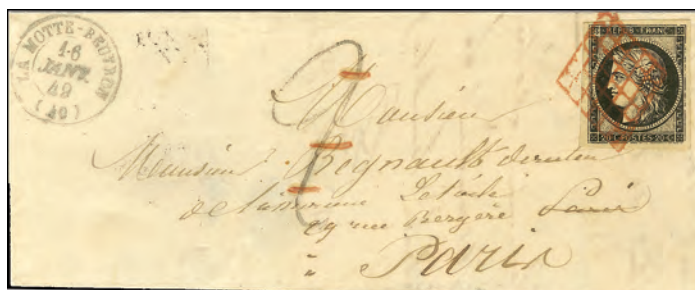 LA MOTTE-BEUVRON
16
JANV.
49
(40)
REPUB. FRANC.
20 C. POSTES 20 C
2
Monsieur
Monsieur Regnault
de
rue Bergère Paris
à Paris